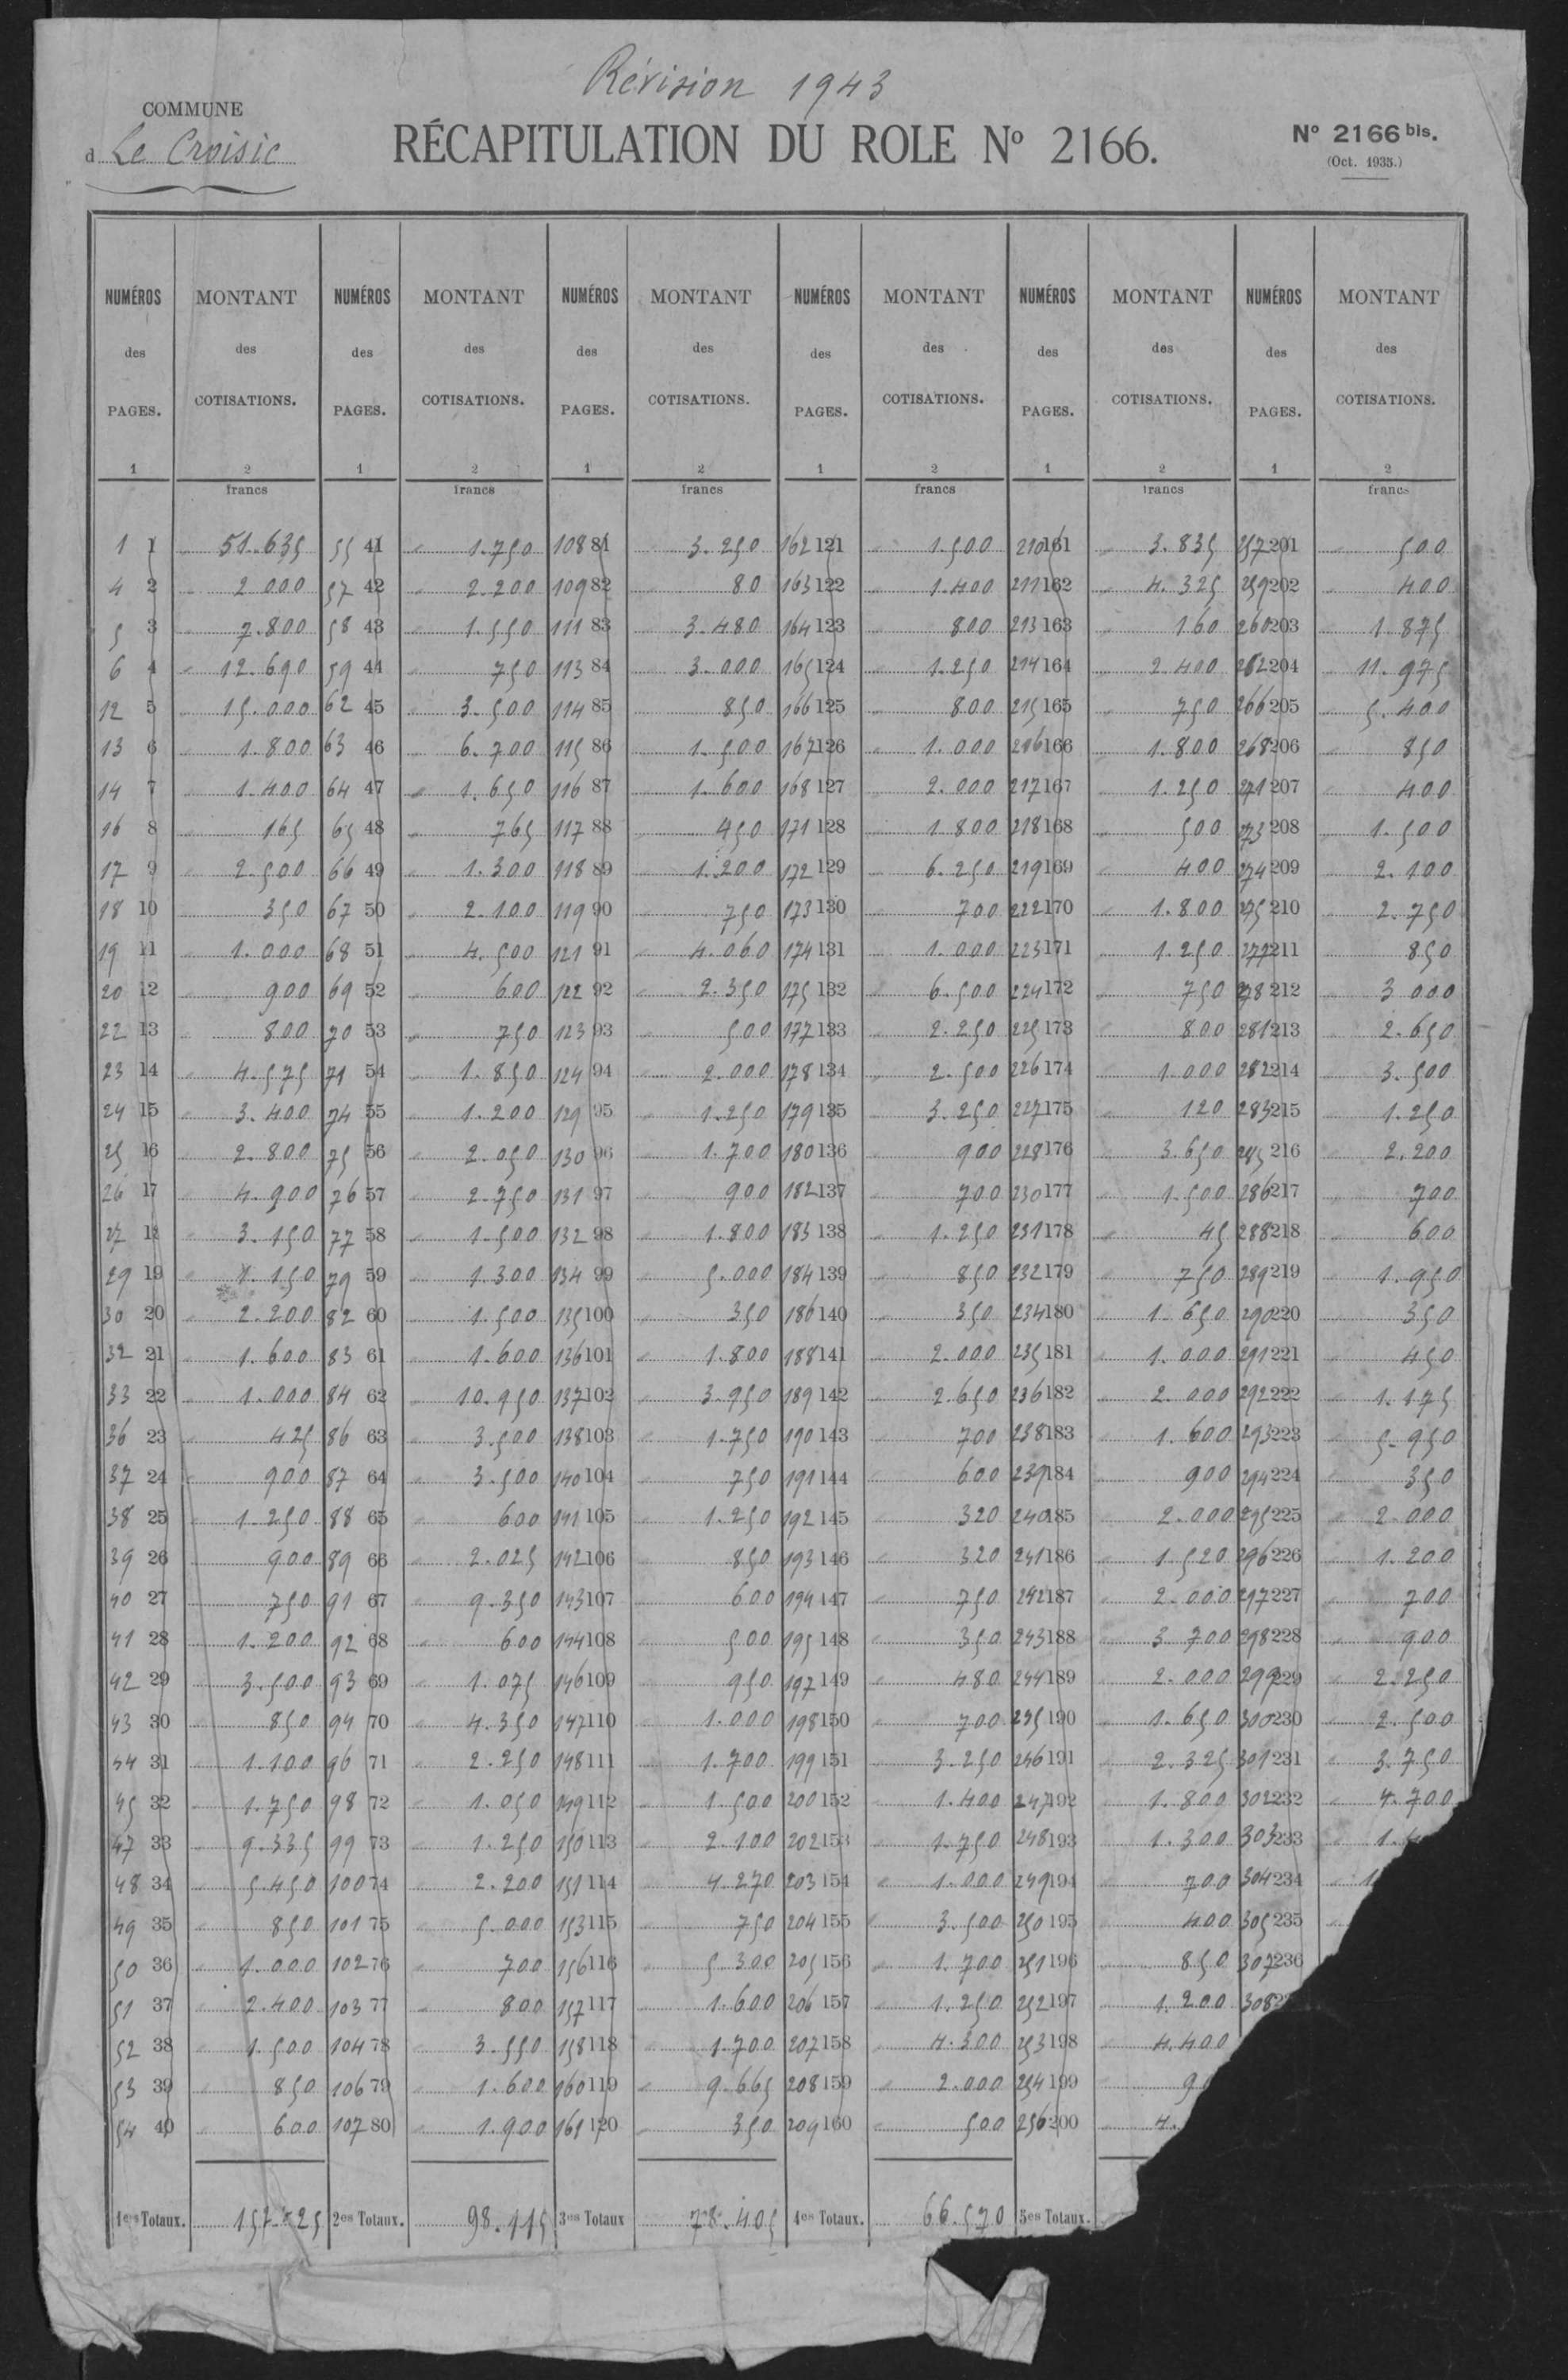 Révision 1943
COMMUNE
d Le Croisic
RÉCAPITULATION DU ROLE Nº 2166.
Nº 2166 bis.
(Oct. 1935.)
NUMÉROS MONTANT NUMÉROS MONTANT NUMÉROS MONTANT NUMÉROS MONTANT NUMÉROS MONTANT NUMÉROS MONTANT
des des des des des des des des des des des des
PAGES. COTISATIONS. PAGES. COTISATIONS. PAGES. COTISATIONS. PAGES. COTISATIONS. PAGES. COTISATIONS. PAGES. COTISATIONS.
1 2 1 2 1 2 1 2 1 2 1 2
francs francs francs francs francs francs
1 1 51.635 55 41 1.750 108 81 3.250 162 121 1.500 210 161 3.835 257 201 500
4 2 2 000 57 42 2.200 109 82 80 163 122 1.400 211 162 4.325 259 202 400
5 3 7.800 58 43 1.550 111 83 3.480 164 123 800 213 163 160 260 203 1.875
6 4 12.690 59 44 750 113 84 3.000 165 124 1.250 214 164 2 400 262 204 11.975
12 5 15.000 62 45 3.500 114 85 850 166 125 800 215 165 750 266 205 5.400
13 6 1.800 63 46 6.700 115 86 1.500 167 126 1.000 216 166 1.800 268 206 850
14 7 1.400 64 47 1.650 116 87 1.600 168 127 2.000 217 167 1.250 271 207 400
16 8 165 65 48 765 117 88 450 171 128 1.800 218 168 500 273 208 1.500
17 9 2.500 66 49 1.300 118 89 1.200 172 129 6.250 219 169 400 274 209 2.100
18 10 350 67 50 2.100 119 90 750 173 130 700 222 170 1.800 275 210 2.750
19 11 1.000 68 51 4.500 121 91 4.060 174 131 1.000 223 171 1.250 277 211 850
20 12 900 69 52 600 122 92 2.350 175 132 6.500 224 172 750 278 212 3 000
22 13 800 70 53 750 123 93 500 177 133 2.250 225 173 800 281 213 2.650
23 14 4.575 71 54 1.850 124 94 2.000 178 134 2.500 226 174 1.000 282 214 3.500
24 15 3.400 74 55 1.200 129 95 1.250 179 135 3.250 227 175 120 283 215 1.250
25 16 2.800 75 56 2.050 130 96 1.700 180 136 900 228 176 3.650 285 216 2.200
26 17 4.900 76 57 2.750 131 97 900 182 137 700 230 177 1.500 286 217 700
27 18 3.150 77 58 1.500 132 98 1.800 183 138 1.250 231 178 45 288 218 600
29 19 1.150 79 59 1.300 134 99 5.000 184 139 850 232 179 750 289 219 1.950
30 20 2.200 82 60 1.500 135 100 350 186 140 350 234 180 1.650 290 220 350
32 21 1.600 83 61 1.600 136 101 1.800 188 141 2.000 235 181 1.000 291 221 450
33 22 1.000 84 62 10.950 137 102 3.950 189 142 2.650 236 182 2.000 292 222 1.175
36 23 425 86 63 3.500 138 103 1.750 190 143 700 238 183 1.600 293 223 5.950
37 24 900 87 64 3.500 140 104 750 191 144 600 239 184 900 294 224 350
38 25 1.250 88 65 600 141 105 1.250 192 145 320 240 185 2.000 295 225 2.000
39 26 900 89 66 2.025 142 106 850 193 146 320 241 186 1.520 296 226 1.200
40 27 750 91 67 9.350 143 107 600 194 147 750 242 187 2.000 297 227 700
41 28 1.200 92 68 600 144 108 500 195 148 350 243 188 3 700 298 228 900
42 29 3.500 93 69 1.075 146 109 950 197 149 480 244 189 2.000 299 229 2.250
43 30 850 94 70 4.350 147 110 1.000 198 150 700 245 190 1.650 300 230 2.500
44 31 1.100 96 71 2.250 148 111 1.700 199 151 3.250 246 191 2.325 301 231 3.750
45 32 1.750 98 72 1.050 149 112 1.500 200 152 1.400 247 192 1.800 302 232 4.700
47 33 9.335 99 73 1.250 150 113 2.100 202 153 1.750 248 193 1.300 303 233
48 34 5.450 100 74 2.200 151 114 4.270 203 154 1.000 249 194 700 304 234
49 35 850 101 75 5.000 153 115 750 204 155 3.500 250 195 400 305 235
50 36 1.000 102 76 700 156 116 5.300 205 156 1.700 251 196 850 307 236
51 37 2.400 103 77 800 157 117 1.600 206 157 1.250 252 197 1.200 308
52 38 1.500 104 78 3.550 158 118 1.700 207 158 4.300 253 198 4.400
53 39 850 106 79 1.600 160 119 9.665 208 159 2.000 254 199
54 40 600 107 80 1.900 161 120 350 209 160 500 256 200
1es Totaux. 2es Totaux. 98.115 3es Totaux 78.405 4es Totaux. 66.570 5es Totaux.